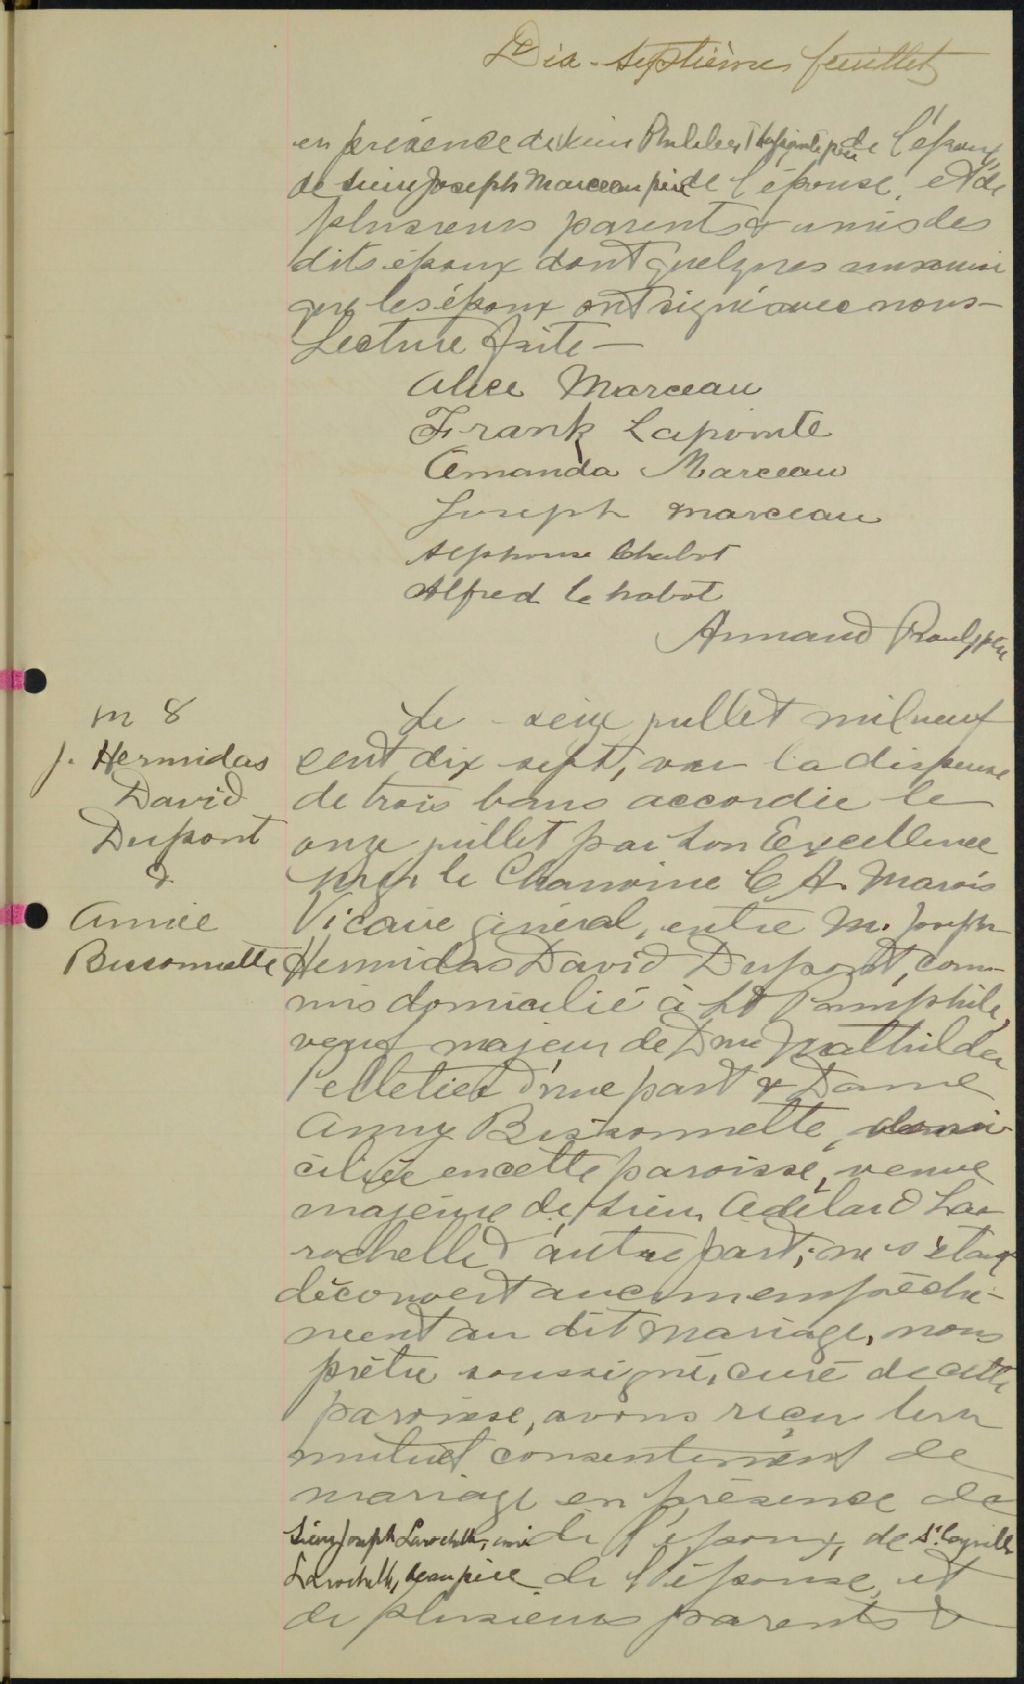 Dix-septième feuillet
en présence de sieur Philibert Lapointe père de l'époux,
de sieur Joseph Marceau père de l'épouse, et de
plusieurs parents & amis des
dits époux dont quelques uns ainsi
que les époux ont signé avec nous -
Lecture faite -
Alice Marceau
Frank Lapointe
Amanda Marceau
Joseph Marceau
Alphonse Chabot
Alfred Chabot
Armand Proulx, ptre
M 8
J. Hermidas
David
Dupont
&
Annie
Bissonnette
Le seize juillet mil neuf
cent dix sept, vu la dispense
de trois bans accordée le
onze juillet par Son Excellence
Mgr le Chanoine C A. Marois
Vicaire général, entre M. Joseph
Hermidas David Dupont, com-
mis domicilié à St Pamphile,
veuf majeur de Dme Mathilda
Pelletier d'une part & Dame
Anny Bissonnette, domi-
ciliée en cette paroisse, veuve
majeure de sieur Adélard La-
rochelle d'autre part; ne s'étant
découvert aucun empêche-
ment au dit mariage, nous
prêtre soussigné, curé de cette
paroisse, avons reçu leur
mutuel consentement de
mariage en présence de
Sieur Joseph Larochelle, ami de l'époux, de Sr Cyrille
Larochelle, beau père de l'épouse, et
de plusieurs parents &